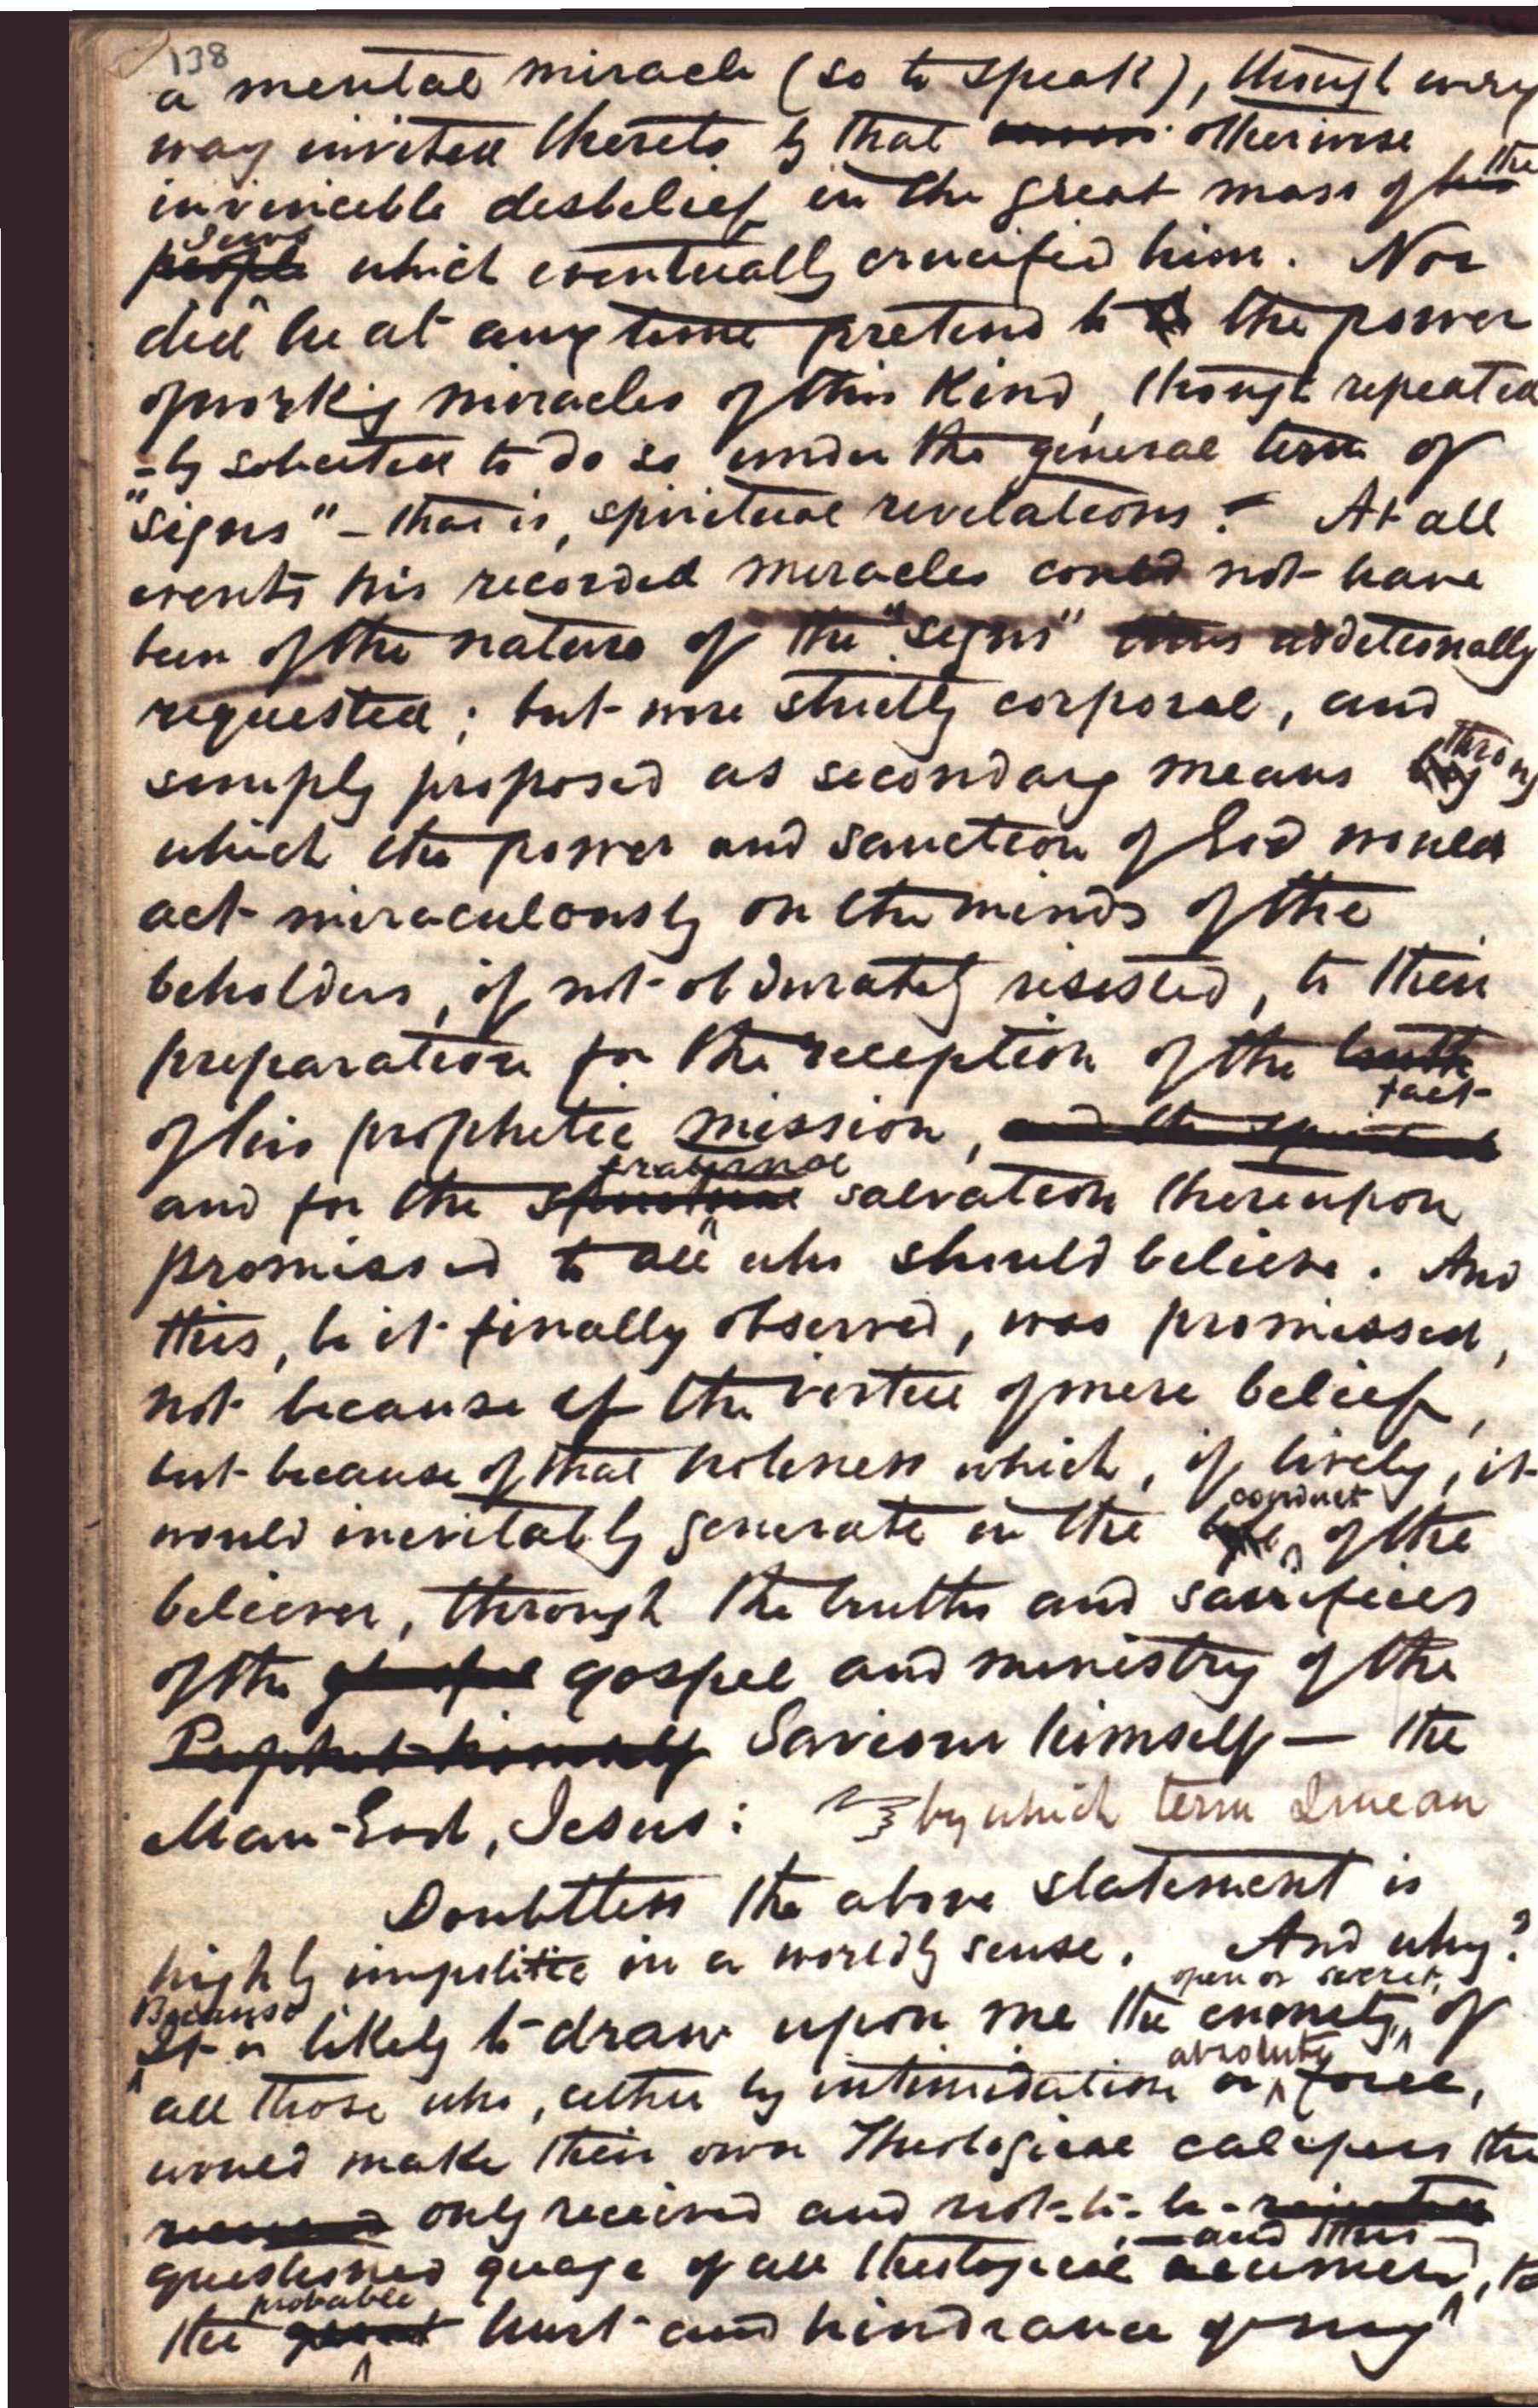 138
a mental miracle (so to speak), though every
way invited thereto by that otherwise
invincible disbelief in the great mass of his the
people Jews which eventually crucified him. Nor
did he at any time pretend to the power
of work'g miracles of this kind, though repeated
-ly solicited to do so under the general term of
"signs" - that is, spiritual revelations. - At all
events his recorded miracles could not have
been of the nature of the "signs" thus additionally
requested; but more strictly corporal, and
simply proposed as secondary means by through
which the power and sanction of God would
act miraculously on the minds of the
beholders, if not obdurately resisted, to their
preparation for the reception of the truth
fact
of his prophetic mission, and the spiritual
and for the spiritual fraternal salvation thereupon
promissed to all who should believe. And
this, be it finally observed, was promissed,
not because of the virtue of mere belief,
but because of that holiness which, if lively, it
would inevitably generate in the life conduct of the
believer, through the truths and sacrifices
of the gospel gospel and ministry of the
Prophet himself Saviour himself — the
Man-God, Jesus: by which term I mean
Doubtless the above statement is
highly impolitic in a worldly sense. And why?
Because It is likely to draw upon me the enmity, open or secret, of
all those who, either by intimidation or absolute force,
would make their own Theological calipers the
received only received and not-to-be-rejected
questioned guage of all theological acumen, — and this — to
the great probable hurt and hindrance of my